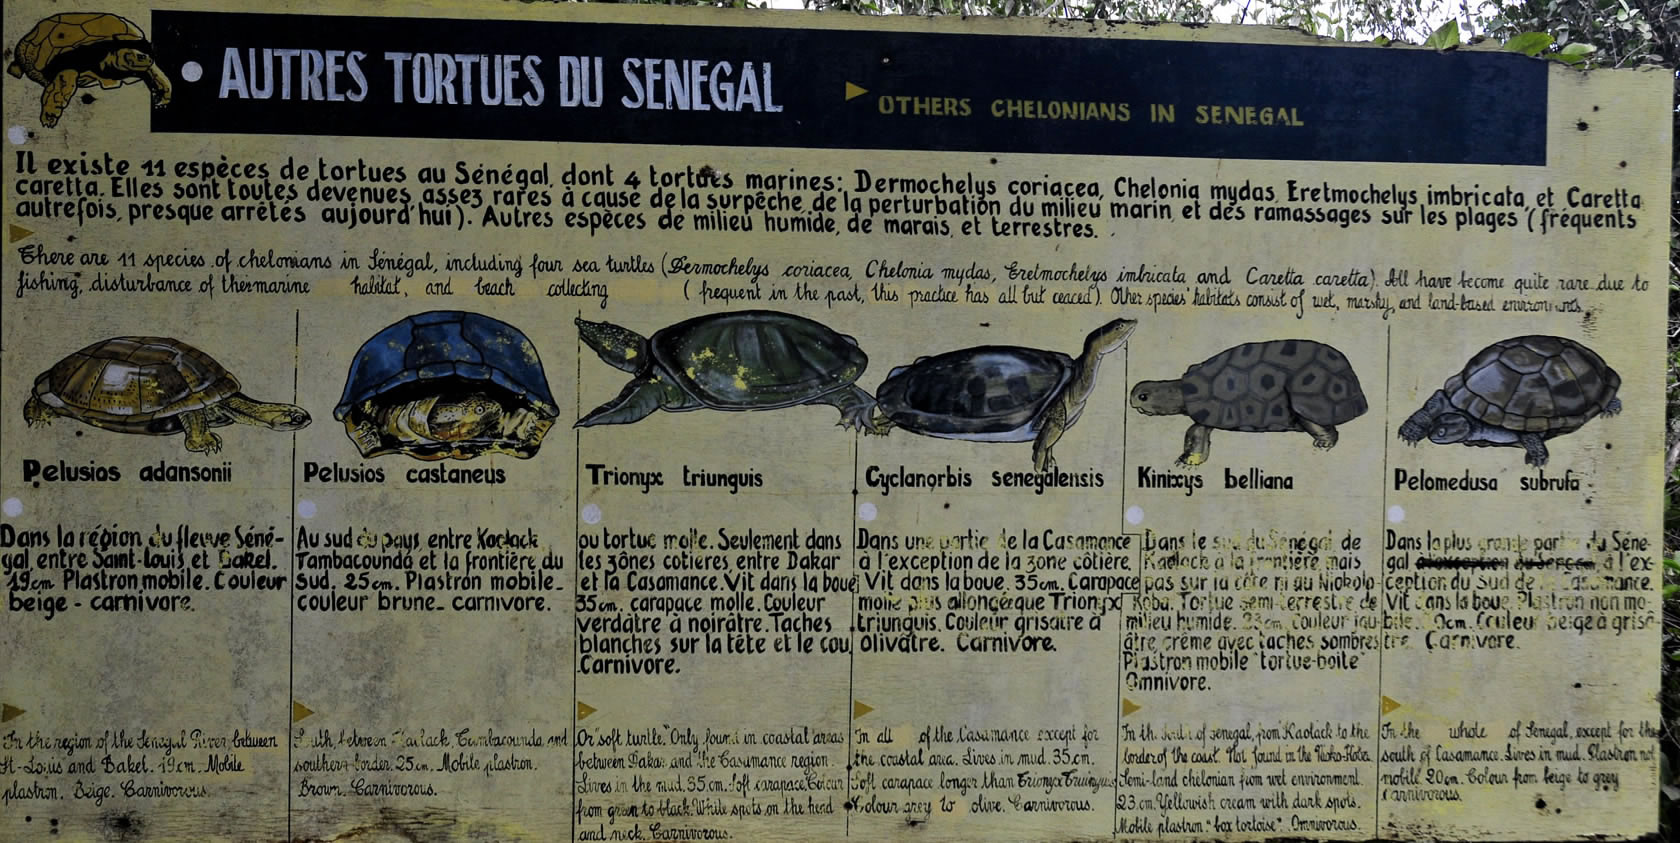 • AUTRES TORTUES DU SENEGAL
OTHERS CHELONIANS IN SENEGAL
Il existe 11 espèces de tortues au Sénégal, dont 4 tortues marines: Dermochelys coriacea, Chelonia mydas, Eretmochelys imbricata, et Caretta
caretta. Elles sont toutes devenues assez rares à cause de la surpêche, de la perturbation du milieu marin, et des ramassages sur les plages (fréquents
autrefois, presque arrêtés aujourd'hui). Autres espèces de milieu humide, de marais, et terrestres.
There are 11 species of chelonians in Sénégal, including four sea turtles (Dermochelys coriacea, Chelonia mydas, Eretmochelys imbricata and Caretta caretta). All have become quite rare due to
fishing, disturbance of the marine habitat, and beach collecting (frequent in the past, this practice has all but ceaced). Other species' habitats consist of wet, marshy, and land-based
Pelusios adansonii
Dans la région du fleuve Séné-
gal, entre Saint-Louis et Bakel.
19cm Plastron mobile. Couleur
beige - carnivore.
In the region of the Senegal River, between
St-Louis and Bakel. 19cm. Mobile
plastron. Beige. Carnivorous.
Pelusios castaneus
Au sud du pays, entre Kaolack
Tambacounda et la frontière du
sud. 25cm. Plastron mobile.
couleur brune. carnivore.
South, between Kaolack, Tambacounda, and
southern border. 25cm. Mobile plastron.
Brown. Carnivorous.
Trionyx triunguis
ou tortue molle. Seulement dans
les zônes cotieres, entre Dakar
et la Casamance. Vit dans la boue,
35cm. carapace molle. Couleur
verdâtre à noirâtre. Taches
blanches sur la tête et le cou.
Carnivore.
Or "soft turtle". Only found in coastal areas
between Dakar and the Casamance region.
Lives in the mud. 35cm. Soft carapace. Colour
from green to black. White spots on the head
and neck. Carnivorous.
Cyclanorbis senegalensis
Dans une partie de la Casamance
à l'exception de la zone côtière.
Vit dans la boue. 35cm. Carapace
molle plus allongée que Trionyx
triunguis. Couleur grisatre à
olivâtre. Carnivore.
In all of the Casamance except for
the coastal area. Lives in mud. 35cm.
Soft carapace longer than Trionyx Triunguis
Colour grey to olive. Carnivorous.
Kinixys belliana
Dans le sud du Sénégal, de
Kaolack à la frontière, mais
pas sur la côte ni au Niokolo-
Koba. Tortue semi-terrestre de
milieu humide. 23cm. Couleur jau-
âtre crême avec taches sombres
Plastron mobile "tortue-boite"
Omnivore.
In the of senegal, from Kaolack to the
border of the coast. Not found in the Nioko-Koba.
Semi-land chelonian from wet environment.
23cm. Yellowish cream with dark spots.
Mobile plastron: "box tortoise". Omnivorous.
Pelomedusa subrufa
Dans la plus grande partie du Séné-
gal à l'ex-
ception du Sud de la Casamance.
Vit dans la boue. Plastron non mo-
bile. 20cm. Couleur beige à grisâ-
tre. Carnivore.
In the whole of Senegal, except for the
south of Casamance. Lives in mud. Plastron not
mobile. 20cm. Colour from beige to grey
Carnivorous.